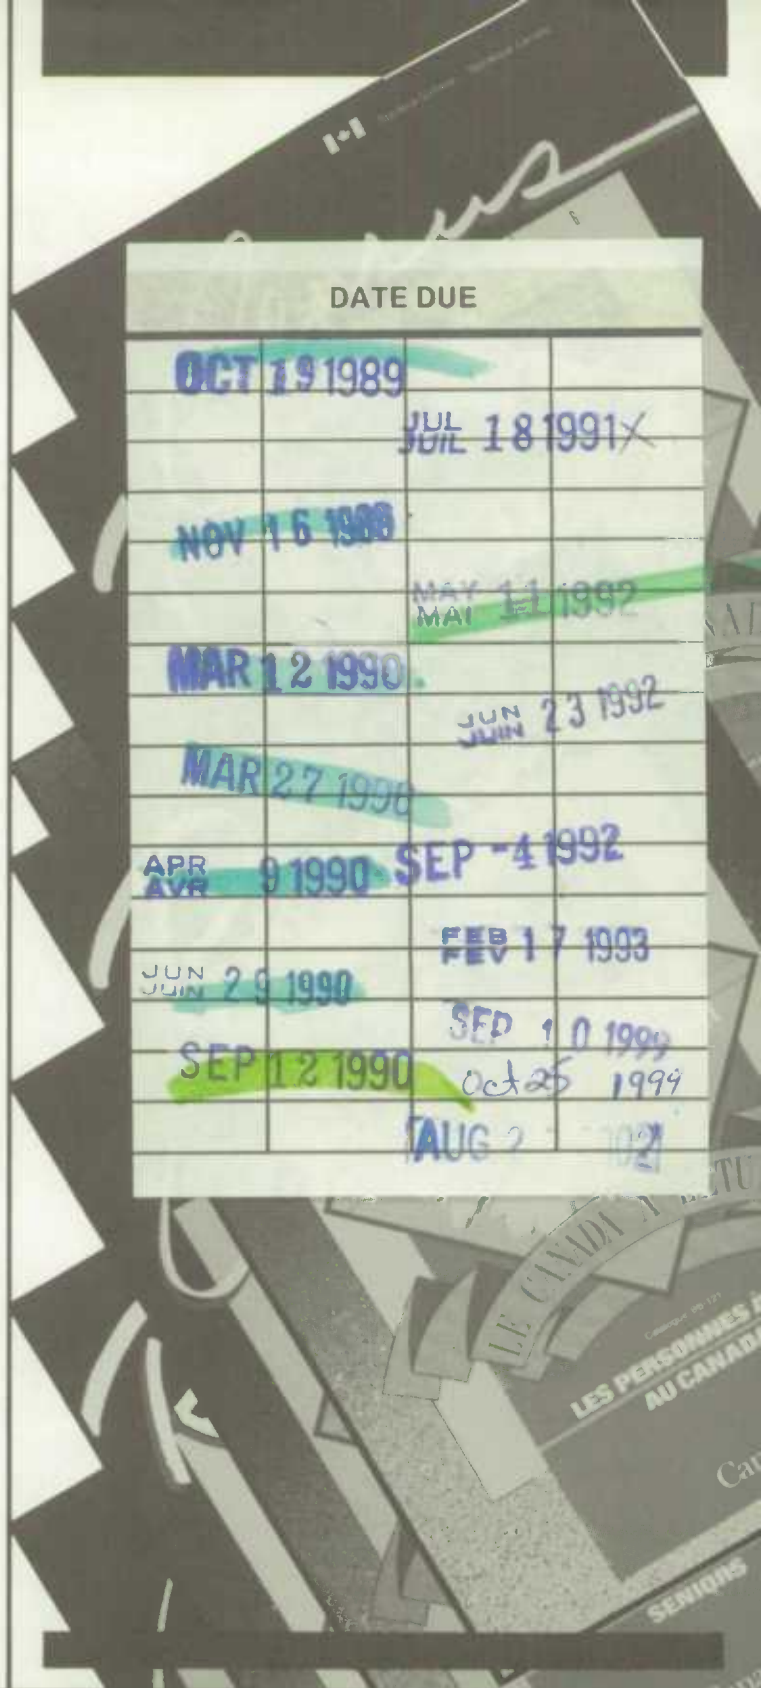 DATE DUE
OCT 19 1989
NOV 16 1989
MAR 12 1990
MAR 27 1990
APR
AVR 9 1990
JUN
JUIN 29 1990
SEP 12 1990
JUL
JUIL 18 1991X
MAY
MAI 11 1992
JUN
JUIN 23 1992
SEP -4 1992
FEB
FEV 17 1993
SEP 10 1999
Oct 25 1999
AUG 2
LE CANADA À
LES PERSONNES
AU CANADA
SENIORS